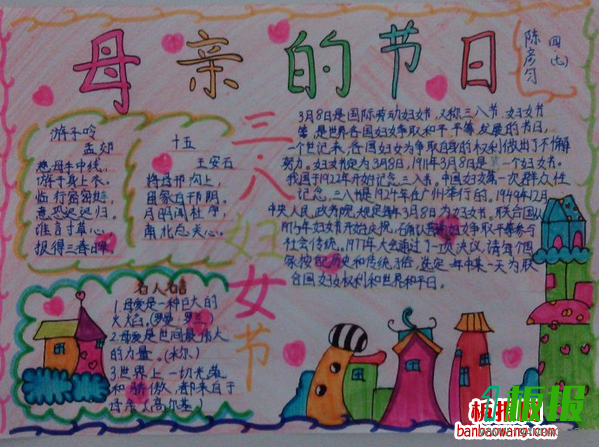 母亲的节日
四(七)
陈彦匀
三·八妇女节
游子吟
孟郊
慈母手中线,
游子身上衣。
临行密密缝,
意恐迟迟归。
谁言寸草心,
报得三春晖
十五
王安石
将母邗沟上,
留家白邗阴。
月明闻杜宇,
南北总关心。
3月8日是国际劳动妇女节,又称三八节,妇女节
等,是世界各国妇女争取和平、平等、发展的节日,
一个世纪来,各国妇女为争取自身的权利做出了不懈
努力。妇女节定为3月8日,1911年3月8日是第一个妇女节。
我国于1922年开始纪念三八节。中国妇女第一次群众性
纪念,三八节是1924年在广州举行的。1949年12月
中央人民,政务院,规定每年3月8日为妇女节,联合国从
1975年妇女节开始庆祝,
社会传统。1977年大会通过了一项决议,请每个国
家按照历史和传统习俗,选定一年中某一天为联
合国妇女权利和世界和平日。
名人名言
1.母爱是一种巨大的
火焰。(罗曼·罗兰)
2.母爱是世间最伟大
的力量。(米尔)
3.世界上一切光荣
和骄傲,都来自于
母亲。(高尔基)
板报
板报网
banbaowang.com